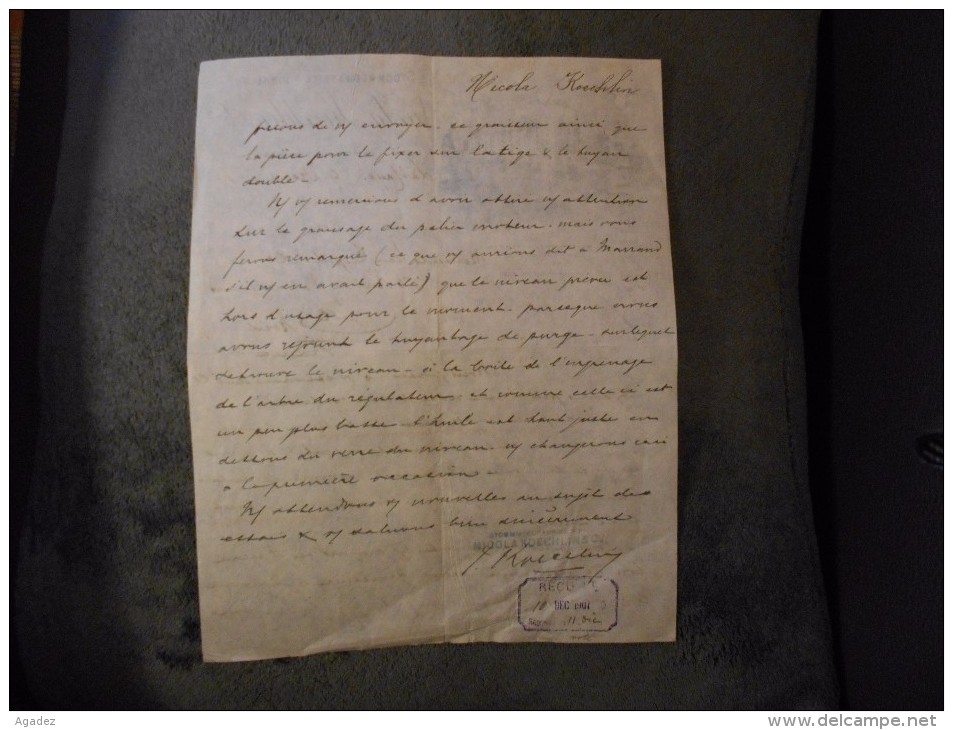 Nicola Koechlin
ferons de vs envoyer ce graisseur ainsi que
la pièce pour le fixer sur la tige & le tuyau
double.
Ns vs remercions d'avoir attiré ns attention
sur le graissage du palier moteur. mais vous
ferons remarquer (ce que vs aurions dit à
s'il vs en avait parlé) que le niveau prévu est
hors d'usage pour le moment. parceque nous
avons rejoint le tuyautage de purge
le niveau. à la boite de l'engrenage
de l'arbre du régulateur. et comme celle ci est
un peu plus basse l'huile est tout juste en
dessous du verre du niveau. ns changerons ceci
à la première occasion.
Ns attendons vs nouvelles au sujet des
essais & vs saluons bien sincèrement
NICOLA KOECHLIN & C.
Koechlin
REÇU
10 DEC 1907
11 Dec
Agadez
http://www.delcampe.net